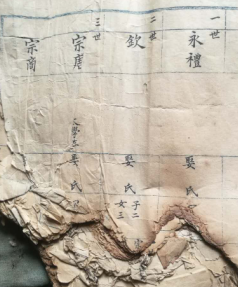 一世
永禮
娶氏
二世
欽
娶氏
子二
女三
三世
宗唐
娶氏
宗商